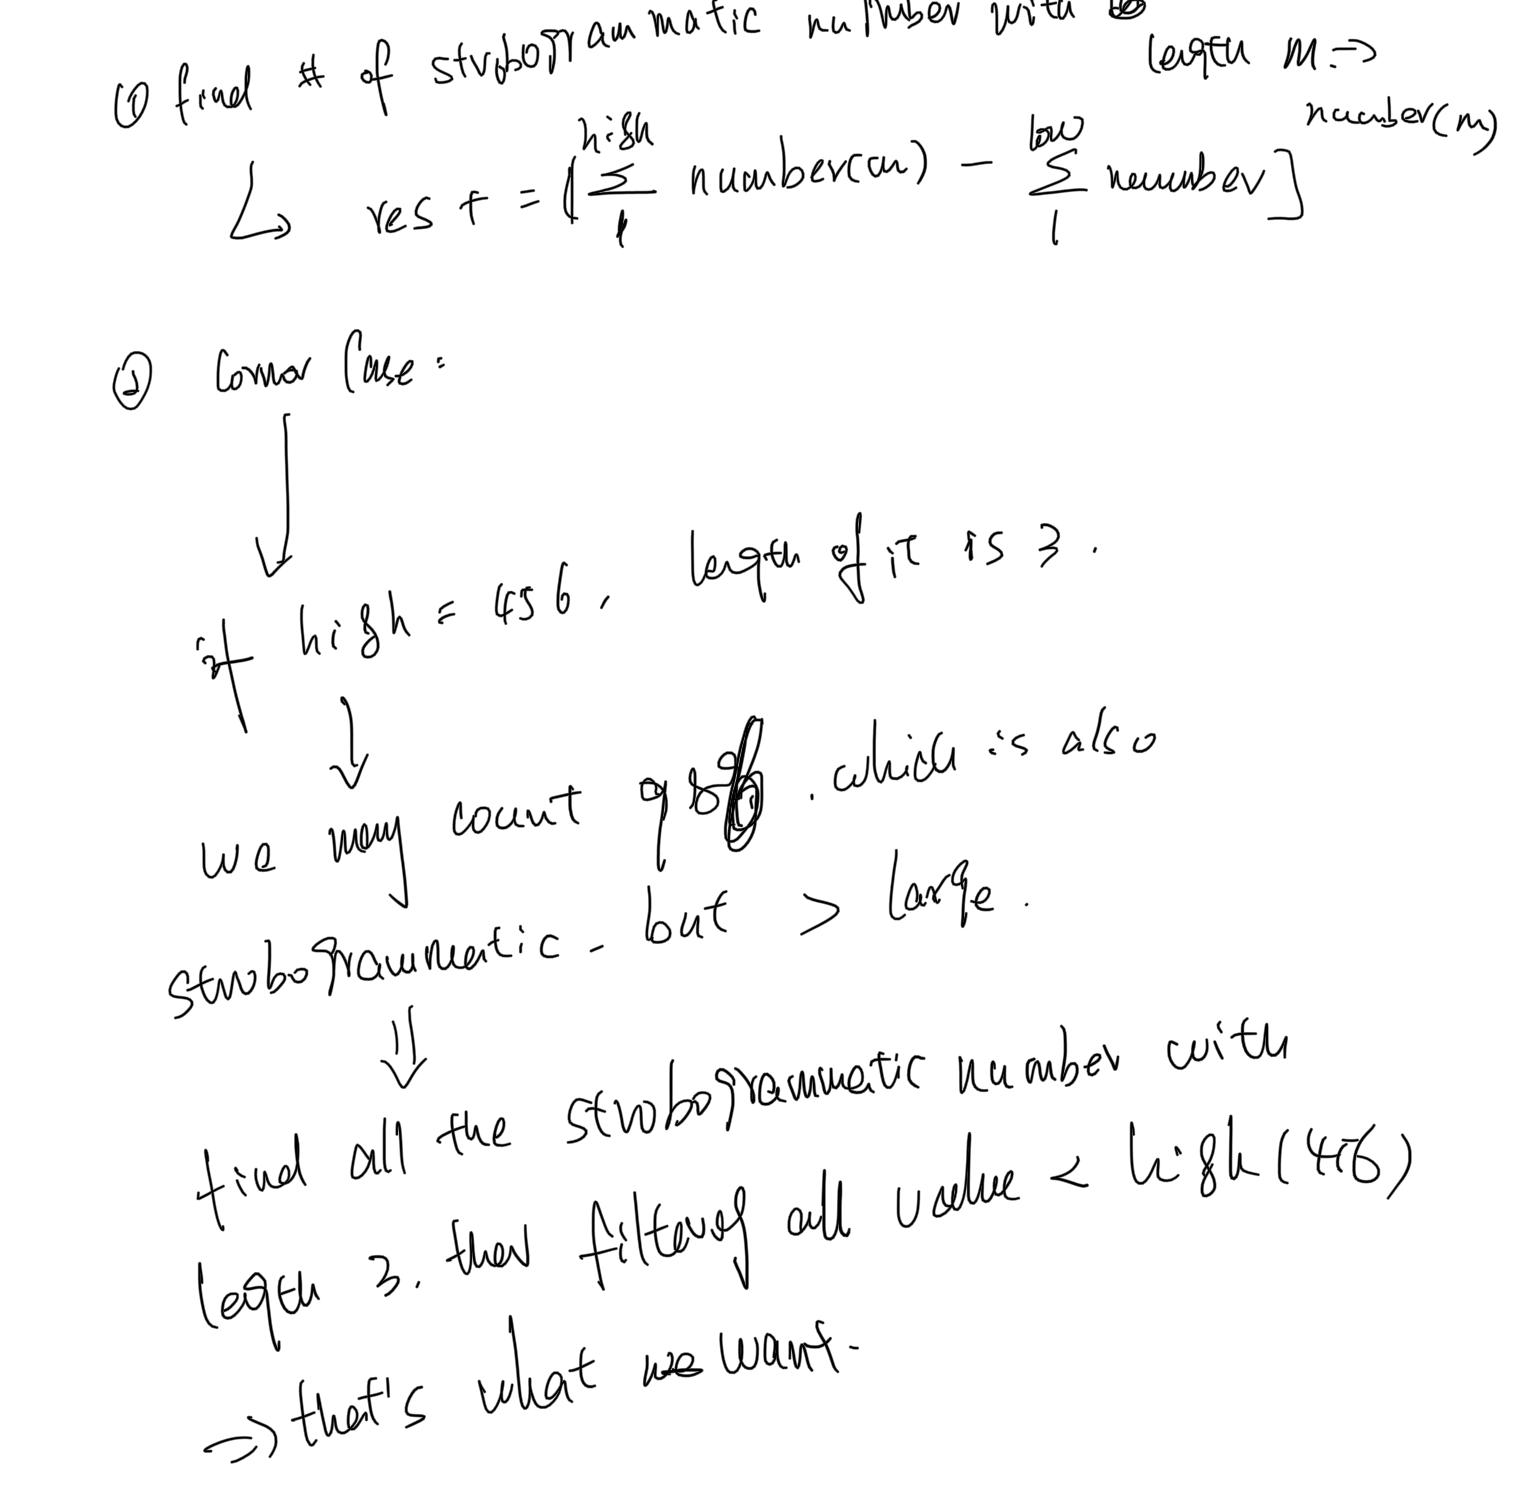 ① find # of strobogrammatic number with
length m. ⇒
number(m)
↳ res += [ high Σ 1 number(m) - low Σ 1 number ]
② Corner Case:
if high = 456, length of it is 3.
↓
we may count 986. which is also
strobogrammatic. but > large.
⇓
find all the strobogrammatic number with
length 3. then filter all value < high (456)
⇒ that's what we want.